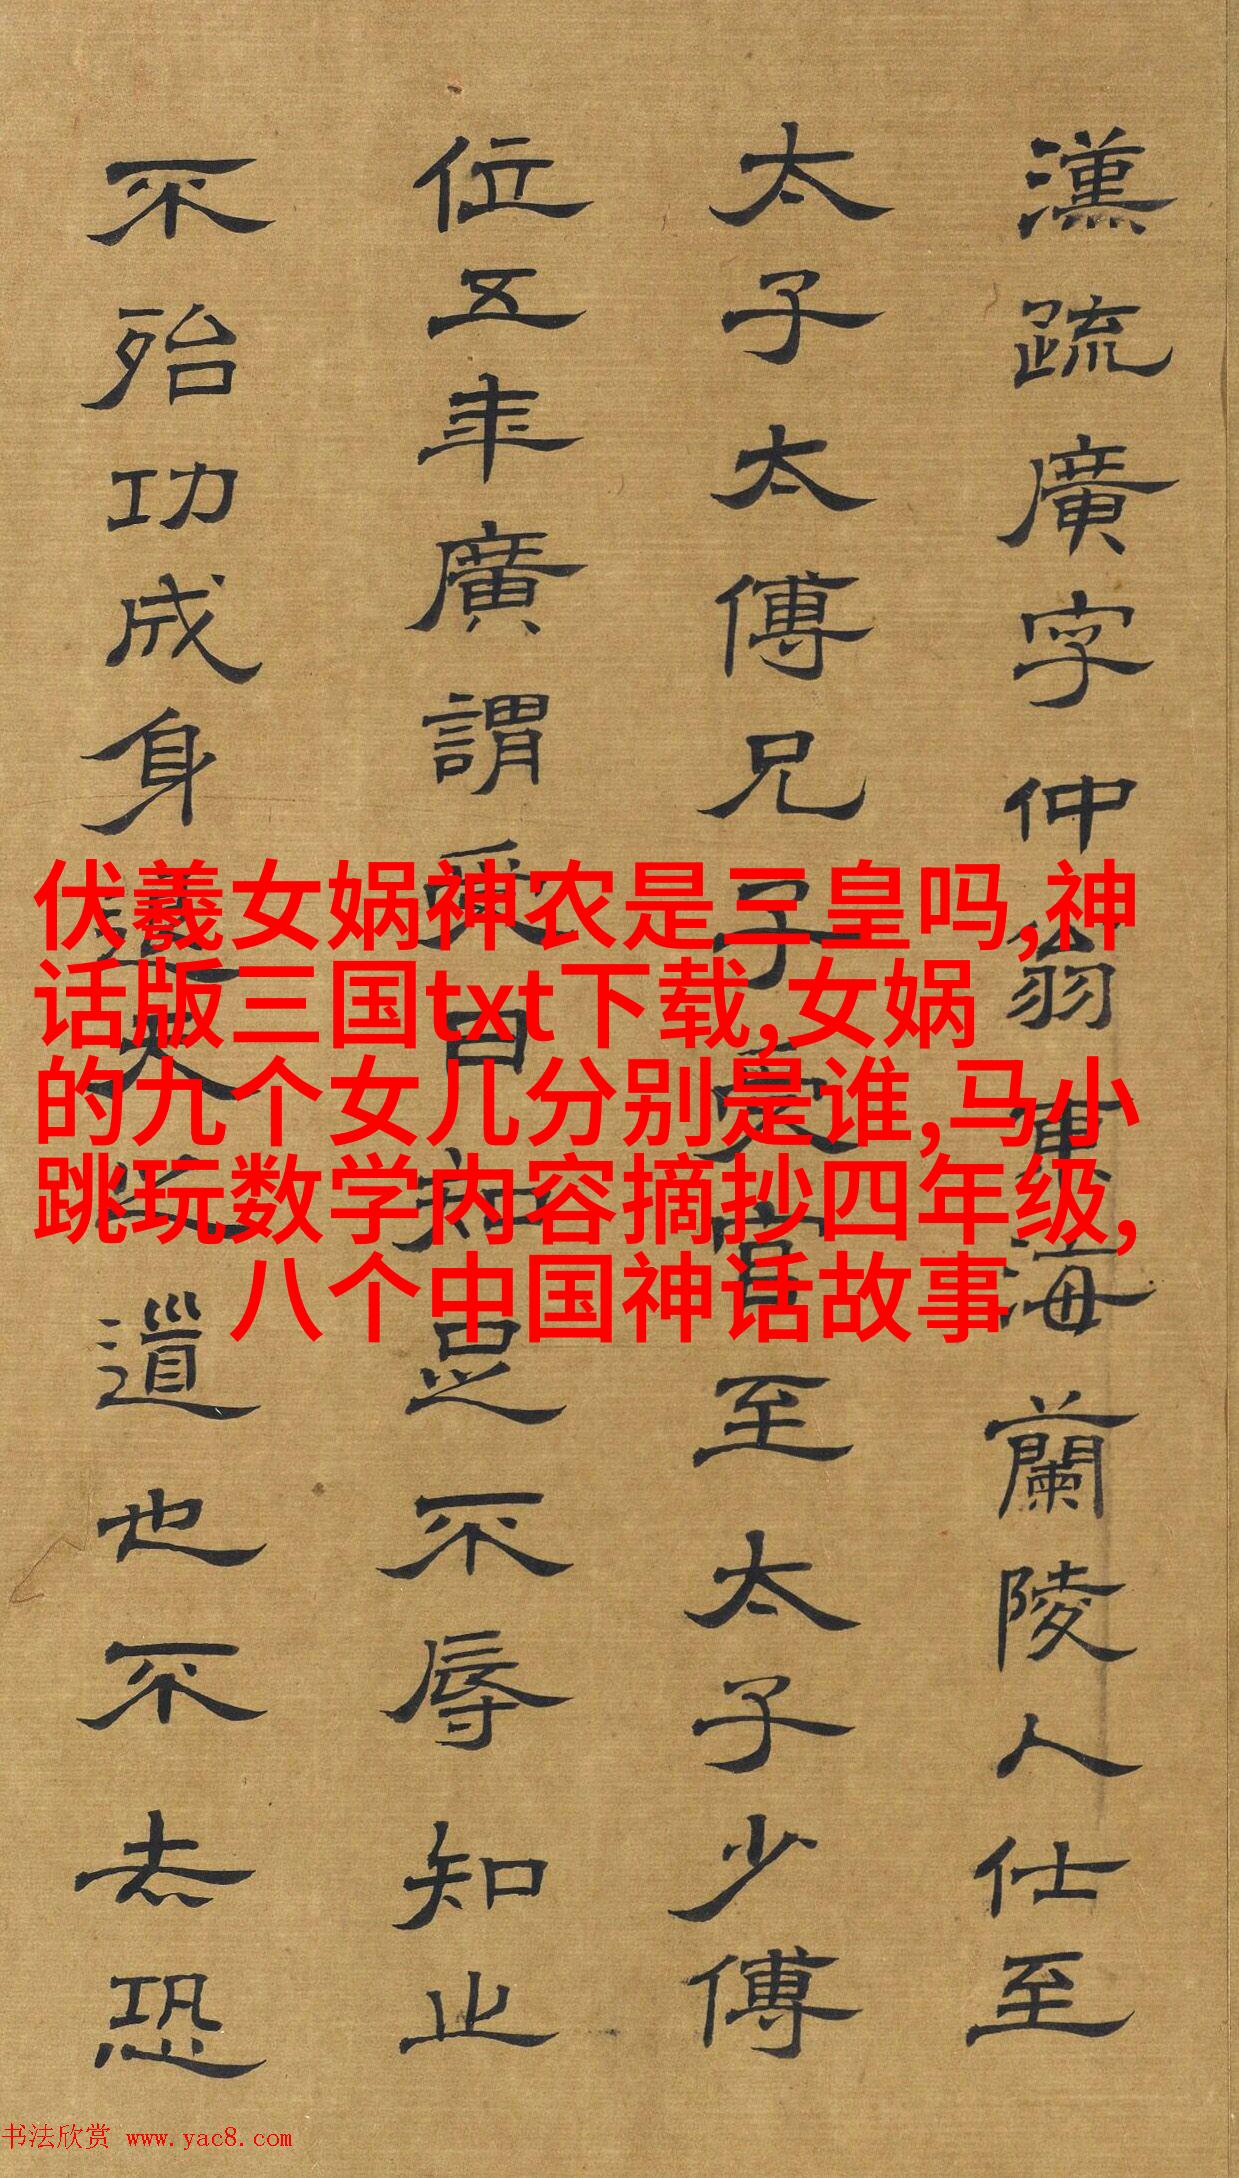 漢疏廣字仲翁東海蘭陵人仕至
太子太傅兄子受官至太子少傅
位五年廣謂受曰知足不辱知止
不殆功成身退天之道也不去恐
伏羲女娲神农是三皇吗,神
话版三国txt下载,女娲
的九个女儿分别是谁,马小
跳玩数学内容摘抄四年级,
八个中国神话故事
书法欣赏 www.yac8.com